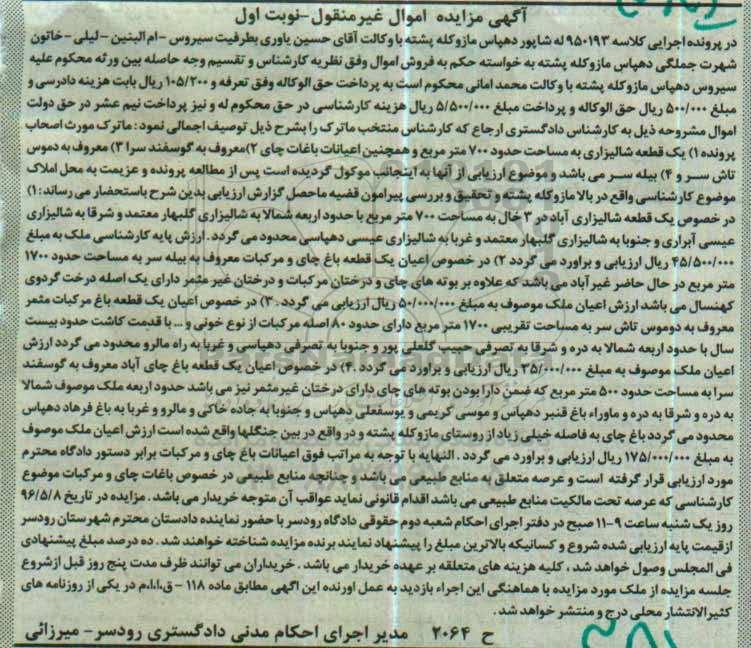 آگهی مزایده اموال غیرمنقول-نوبت اول
در پرونده اجرایی کلاسه ۹۵۰۱۹۳ له شاپور دهپاس مازوکله پشته با وکالت آقای حسین یاوری بطرفیت سیروس - ام البنین - لیلی - خاتون
شهرت جملگی دهپاس مازوکله پشته به خواسته حکم به فروش اموال وفق نظریه کارشناس و تقسیم وجه حاصله بین ورثه محکوم علیه
سیروس دهپاس مازوکله پشته با وکالت محمد امانی محکوم است به پرداخت حق الوکاله وفق تعرفه و ۱۰۵/۲۰۰ ریال بابت هزینه دادرسی و
مبلغ ۵۰۰/۰۰۰ ریال حق الوکاله و پرداخت مبلغ ۵/۵۰۰/۰۰۰ ریال هزینه کارشناسی در حق محکوم له و نیز پرداخت نیم عشر در حق دولت
اموال مشروحه ذیل به کارشناس دادگستری ارجاع که کارشناس منتخب ماترک را بشرح ذیل توصیف اجمالی نمود: ماترک مورث اصحاب
پرونده ۱) یک قطعه شالیزاری به مساحت حدود ۷۰۰ متر مربع و همچنین اعیانات باغات چای ۲)معروف به گوسفند سرا ۳) معروف به دموس
تاش سر و ۴) بیله سر می باشد و موضوع ارزیابی از آنها به اینجانب موکول گردیده است پس از مطالعه پرونده و عزیمت به محل املاک
موضوع کارشناسی واقع در بالا مازوکله پشته و تحقیق و بررسی پیرامون قضیه ماحصل گزارش ارزیابی بدین شرح باستحضار می رساند: ۱)
در خصوص یک قطعه شالیزاری آباد در ۳ خال به مساحت ۷۰۰ متر مربع با حدود اربعه شمالا به شالیزاری گلبهار معتمد و شرقا به شالیزاری
عیسی آبراری و جنوبا به شالیزاری گلبهار معتمد و غربا به شالیزاری عیسی دهپاسی محدود می گردد. ارزش پایه کارشناسی ملک به مبلغ
۴۵/۵۰۰/۰۰۰ ریال ارزیابی و براورد می گردد ۲) در خصوص اعیان یک قطعه باغ چای و مرکبات معروف به بیله سر به مساحت حدود ۱۷۰۰
متر مربع در حال حاضر غیرآباد می باشد که علاوه بر بوته های چای و درختان مرکبات و درختان غیر مثمر دارای یک اصله درخت گردوی
کهنسال می باشد ارزش اعیان ملک موصوف به مبلغ ۵۰/۰۰۰/۰۰۰ ریال ارزیابی می گردد. ۳) در خصوص اعیان یک قطعه باغ مرکبات مثمر
معروف به دوموس تاش سر به مساحت تقریبی ۱۷۰۰ متر مربع دارای حدود ۸۰ اصله مرکبات از نوع خونی و ... با قدمت کاشت حدود بیست
سال با حدود اربعه شمالا به دره و شرقا به تصرفی حسیب گلعلی پور و جنوبا به تصرفی دهپاسی و غربا به راه مالرو محدود می گردد ارزش
اعیان ملک موصوف به مبلغ ۳۵/۰۰۰/۰۰۰ ریال ارزیابی و براورد می گردد. ۴) در خصوص اعیان یک قطعه باغ چای آباد معروف به گوسفند
سرا به مساحت حدود ۵۰۰ متر مربع که ضمن دارا بودن بوته های چای دارای درختان غیرمثمر نیز می باشد حدود اربعه ملک موصوف شمالا
به دره و شرقا به دره و ماوراء باغ قنبر دهپاس و موسی کریمی و یوسفعلی دهپاس و جنوبا به جاده خاکی و مالرو و غربا به باغ فرهاد دهپاس
محدود می گردد باغ چای به فاصله خیلی زیاد از روستای مازوکله پشته و در واقع در بین جنگلها واقع شده است ارزش اعیان ملک موصوف
به مبلغ ۱۷۵/۰۰۰/۰۰۰ ریال ارزیابی و براورد می گردد. النهایه با توجه به مراتب فوق اعیانات باغ چای و مرکبات برابر دستور دادگاه محترم
مورد ارزیابی قرار گرفته است و عرصه متعلق به منابع طبیعی می باشد و چنانچه منابع طبیعی در خصوص باغات چای و مرکبات موضوع
کارشناسی که عرصه تحت مالکیت منابع طبیعی می باشد اقدام قانونی نماید عواقب آن متوجه خریدار می باشد. مزایده در تاریخ ۹۶/۵/۸
روز یک شنبه ساعت ۹-۱۱ صبح در دفتر اجرای احکام شعبه دوم حقوقی دادگاه رودسر با حضور نماینده دادستان محترم شهرستان رودسر
ازقیمت پایه ارزیابی شده شروع و کسانیکه بالاترین مبلغ را پیشنهاد نمایند برنده مزایده شناخته خواهند شد. ده درصد مبلغ پیشنهادی
فی المجلس وصول خواهد شد، کلیه هزینه های متعلقه بر عهده خریدار می باشد. خریداران می توانند ظرف مدت پنج روز قبل ازشروع
جلسه مزایده از ملک مورد مزایده با هماهنگی این اجراء بازدید به عمل اورنده این اگهی مطابق ماده ۱۱۸ - ق،ا،ا،م در یکی از روزنامه های
کثیرالانتشار محلی درج و منتشر خواهد شد.
ح ۲۰۶۴ مدیر اجرای احکام مدنی دادگستری رودسر- میرزائی